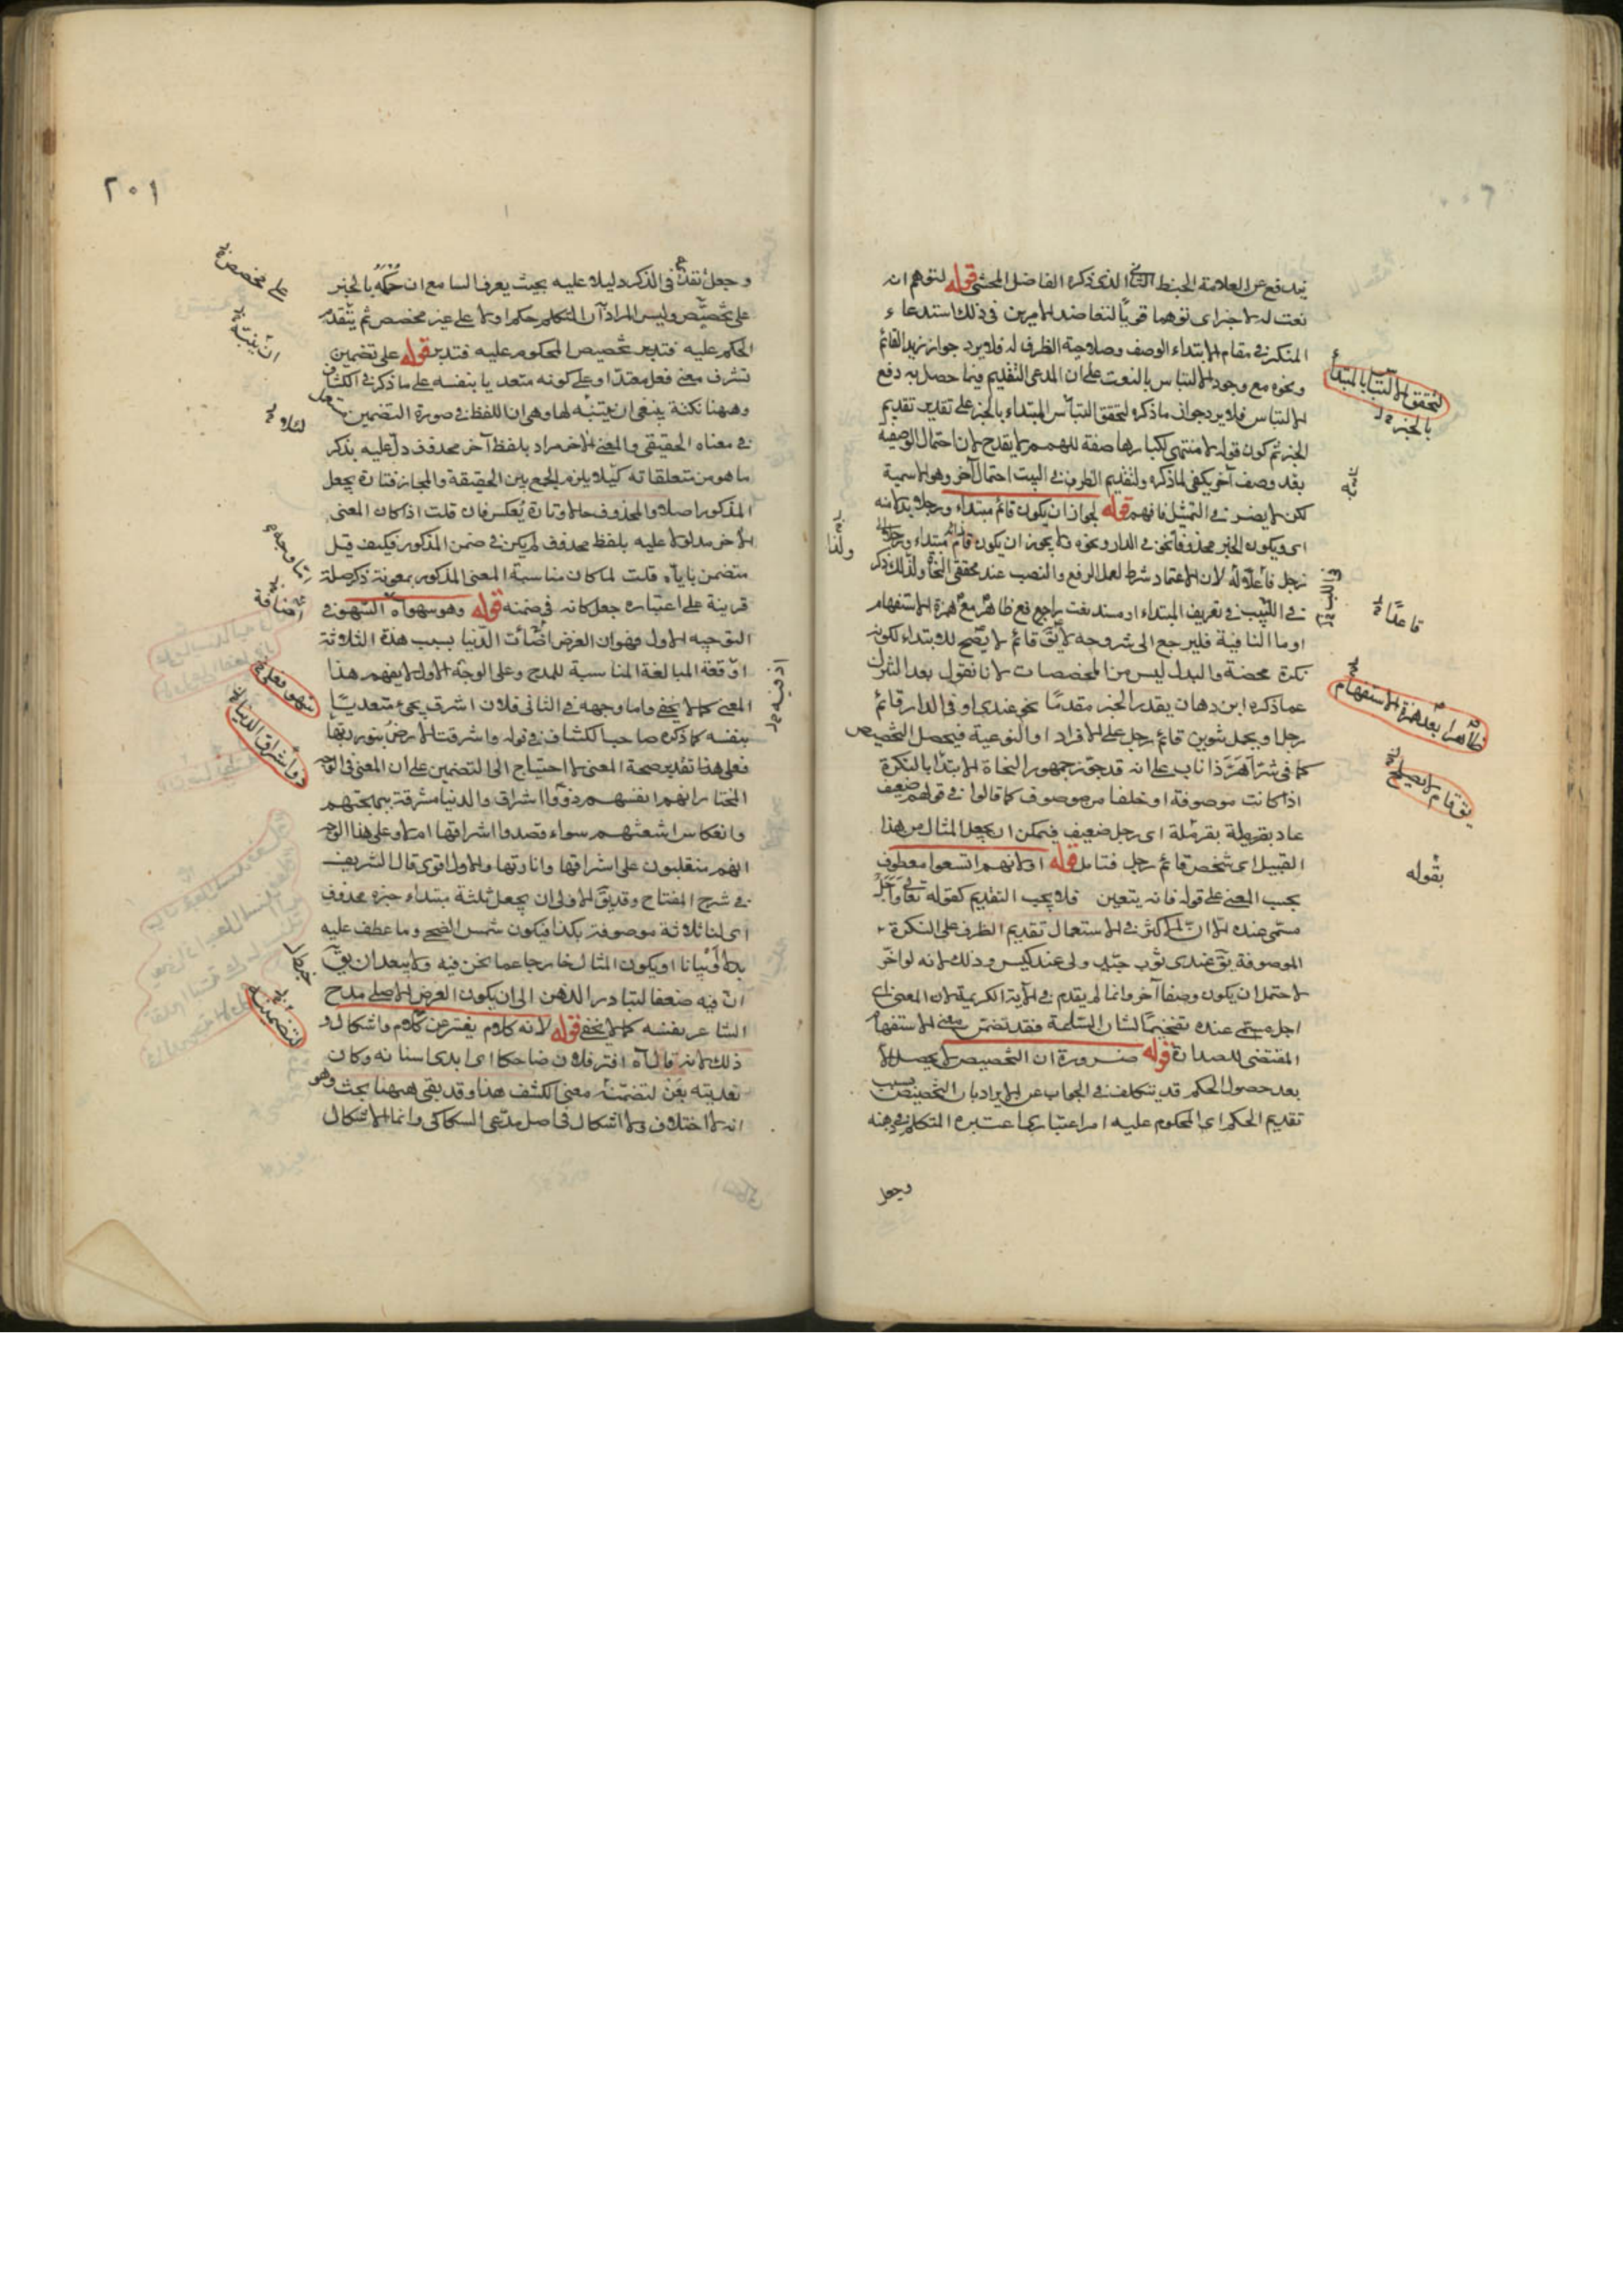 فيندفع عن العلامة الخبط الذي ذكره الفاضل المحشي قوله لتوهم انه
نعت له لا خبر اي توهما قويا لتعاضد الامرين في ذلك استدعاء
المنكر في مقام الابتداء الوصف وصلاحية الظرف له فلا يرد جواز زيد القائم
ونحوه مع وجود الالتباس بالنعت على ان المدعى التقديم فيما حصل به دفع
الالتباس فلا يرد جواز ما ذكره لتحقق التباس المبتداء بالخبر على تقدير تقديم
الخبر ثم كون قوله لا منتهى لكبارها صفة للهمم لا يقدح لان احتمال الوصفية
بعد وصف آخر يكفي لما ذكره ولتقديم الظرف في البيت احتمال آخر وهو الاسمية
لكن لا يضر في التمثيل فافهم قوله لجواز ان يكون قائم مبتداء ورجل بدلا منه
اي ويكون الخبر محذوفا نحو في الدار ونحوه ولا يجوز ان يكون قائم مبتداء ورجل
رجل فاعلا له لان الاعتماد شرط لعمل الرفع والنصب عند محققي النحاة ولذلك ذكر
في اللبيب في تعريف المبتداء او مسند نعت رافع ظاهر مع همزة الاستفهام
او ما النافية فليرجع الى شروحه لا يق قائم لا يصح للابتداء لكونه
نكرة محضة والبدل ليس من المخصصات لانا نقول بعد التنزل
عما ذكره ابن دهان يقدر الخبر مقدما نحو عندي او في الدار قائم
رجل او يحمل تنوين قائم رجل على الافراد او النوعية فيحصل التخصيص
كما في شر اهر ذا ناب على انه قد جوز جمهور النحاة الابتداء بالنكرة
اذا كانت موصوفة او خلفا من موصوف كما قالوا في قولهم ضعيف
عاذ بقرملة اي رجل ضعيف فيمكن ان يجعل المثال من هذا
القبيل اي شخص قائم رجل فتامل قوله او لانهم اتسعوا معطوف
بحسب المعنى على قوله فانه يتعين فلا يجب التقديم كقوله تعالى واجل
مسمى عنده الا ان الاكثر في الاستعمال تقديم الظرف على النكرة
الموصوفة يق عندي ثوب جيد ولي عبد كيس وذلك لانه لو اخر
لاحتمل ان يكون وصفا آخر وانما لم يقدم في الآية الكريمة لان المعنى اي
اجل مسمى عنده تفخيما لشان الساعة فقد تضمن معنى الاستفهام
المقتضى للصدارة قوله ضرورة ان التخصيص لا يحصل الا
بعد حصول الحكم قد يتكلف في الجواب عن الايراد بان التخصيص بسبب
تقديم الحكم اي المحكوم عليه امر اعتباري اعتبره المتكلم في ذهنه
وجعل
لتحقق التباس المبتداء
بالخبر
ولنا
في اللب
قاعدا
ظاهرا بعد همزة الاستفهام
يق قائم لا يصلح
بقوله
٢٠١
وجعل تقدمه في الذكر دليلا عليه بحيث يعرف السامع ان حكمه بالخبر
على تخصيص وليس المراد ان المتكلم حكم اولا على غير مخصص ثم يتقدم
الحكم عليه فتدبر تخصيص المحكوم عليه فتدبر قوله على تضمين
تشرف معنى فعل معتدا وعلى كونه متعديا بنفسه على ما ذكر في الكشاف
وههنا نكتة ينبغي ان يتنبه لها وهي ان اللفظ في صورة التضمين
في معناه الحقيقي والمعنى الآخر مراد بلفظ آخر محذوف دل عليه بذكر
ما هو من متعلقاته كيلا يلزم الجمع بين الحقيقة والمجاز فتارة يجعل
المذكور اصلا والمحذوف حالا وتارة يعكس فان قلت اذا كان المعنى
الآخر مدلولا عليه بلفظ محذوف لم يكن في ضمن المذكور فكيف قيل
متضمن باياه قلت لما كان مناسبة المعنى المذكور بمعونة ذكر صلة
قرينة على اعتباره جعل كانه في ضمنه قوله وهو سهو اه السهو في
التوجيه الاول فهو ان الغرض اضاءت الدنيا بسبب هذه الثلاثة
المبالغة المناسبة للمدح وعلى الوجه الاول لا يفهم هذا
المعنى كما لا يخفى واما وجهه في الثاني فلان اشرق يجيء متعديا
بنفسه كما ذكره صاحب الكشاف في قوله واشرقت الارض بنور ربها
فعلى هذا تقدير صحة المعنى لا احتياج الى التضمين على ان المعنى في الوجه
المختار انهم انفسهم ذووا اشراق والدنيا مشرقة ببهجتهم
وانعكاس اشعتهم سواء قصدوا اشراقها ام لا وعلى هذا الوجه
انهم منقلبون على اشراقها وانارتها والاول اقوى قال الشريف
في شرح المفتاح وقد يق الاولى ان يجعل ثلثة مبتداء خبره محذوف
اي لنا ثلاثة موصوفة بكذا فيكون شمس الضحى وما عطف عليه
بدلا او بيانا او يكون المثال خارجا عما نحن فيه ولا يبعد ان يق
ان فيه ضعفا لتبادر الذهن الى ان يكون الغرض الاصلي مدح
الشاعر بنفسه كما لا يخفى قوله لانه كلام يفتر عن كلام واشكال و
ذلك لانه قال اه افتر فلان ضاحكا اي ابدى اسنانه وكان
تعديته بعن لتضمنه معنى الكشف هذا وقد بقي ههنا بحث وهو
انه لا اختلاف ولا اشكال في اصل مدعى السكاكي وانما الاشكال
على مخصص
ان يتنبه
لئلا
مستعمل
اما وجه
اضافة
سهو فعل
واشراق الدنيا
اذ فيه
لتضمنه